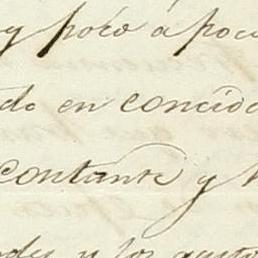 y poco a poco
do en concido
contante y
y los gasto